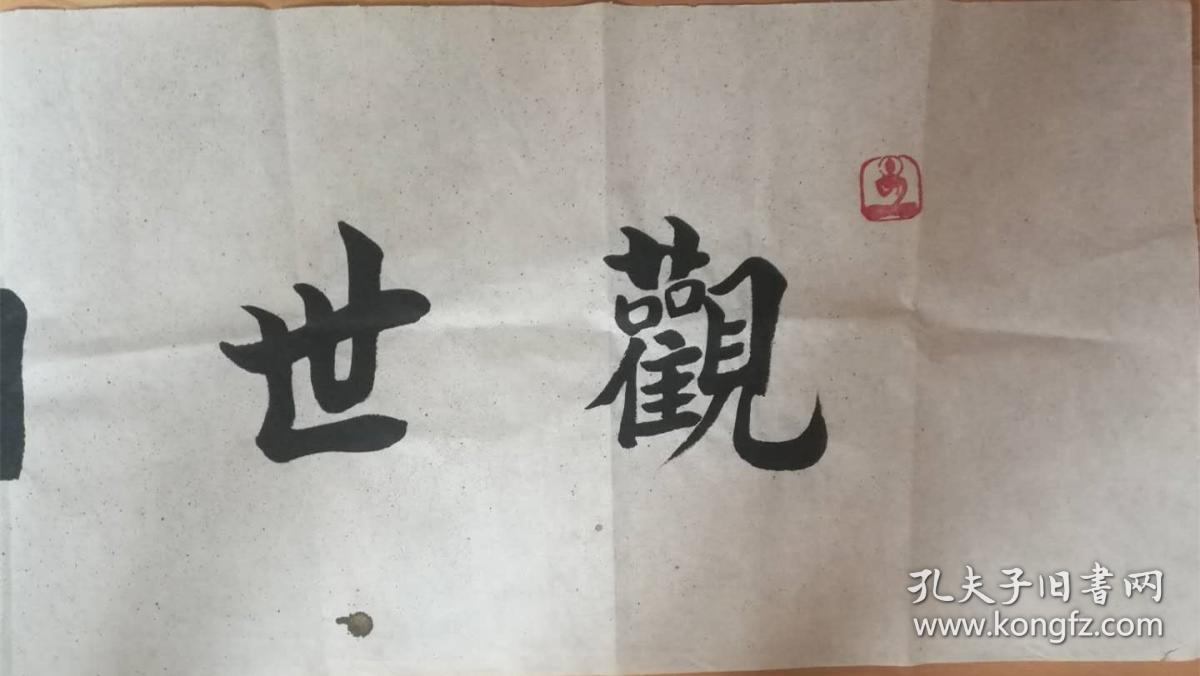 觀世
孔夫子旧書网
www.kongfz.com